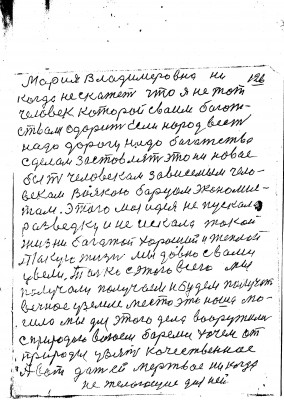 126
Мария Владимеровна ни
когда не скажет что я не тот
человек которой сваим богат-
ствам одарит
надо дорогу надо богатства
сделам заставлят этои новае
быт человекам зависемым чело-
векам всякою барцом экономие-
там. Этого моя идея не пускала
разведку и не искала такой
жизни богатой хорошей и теплой
такую жизн мы довно с вами
увели. Только с этого всего мы
получали получаем и будем получат
вечное уземле место это наша мо-
гила мы для этого дела вооружилис
с природою воюем боремся хочем от
природы узят качественное
даже й мертвае никогда
не желающие для ней